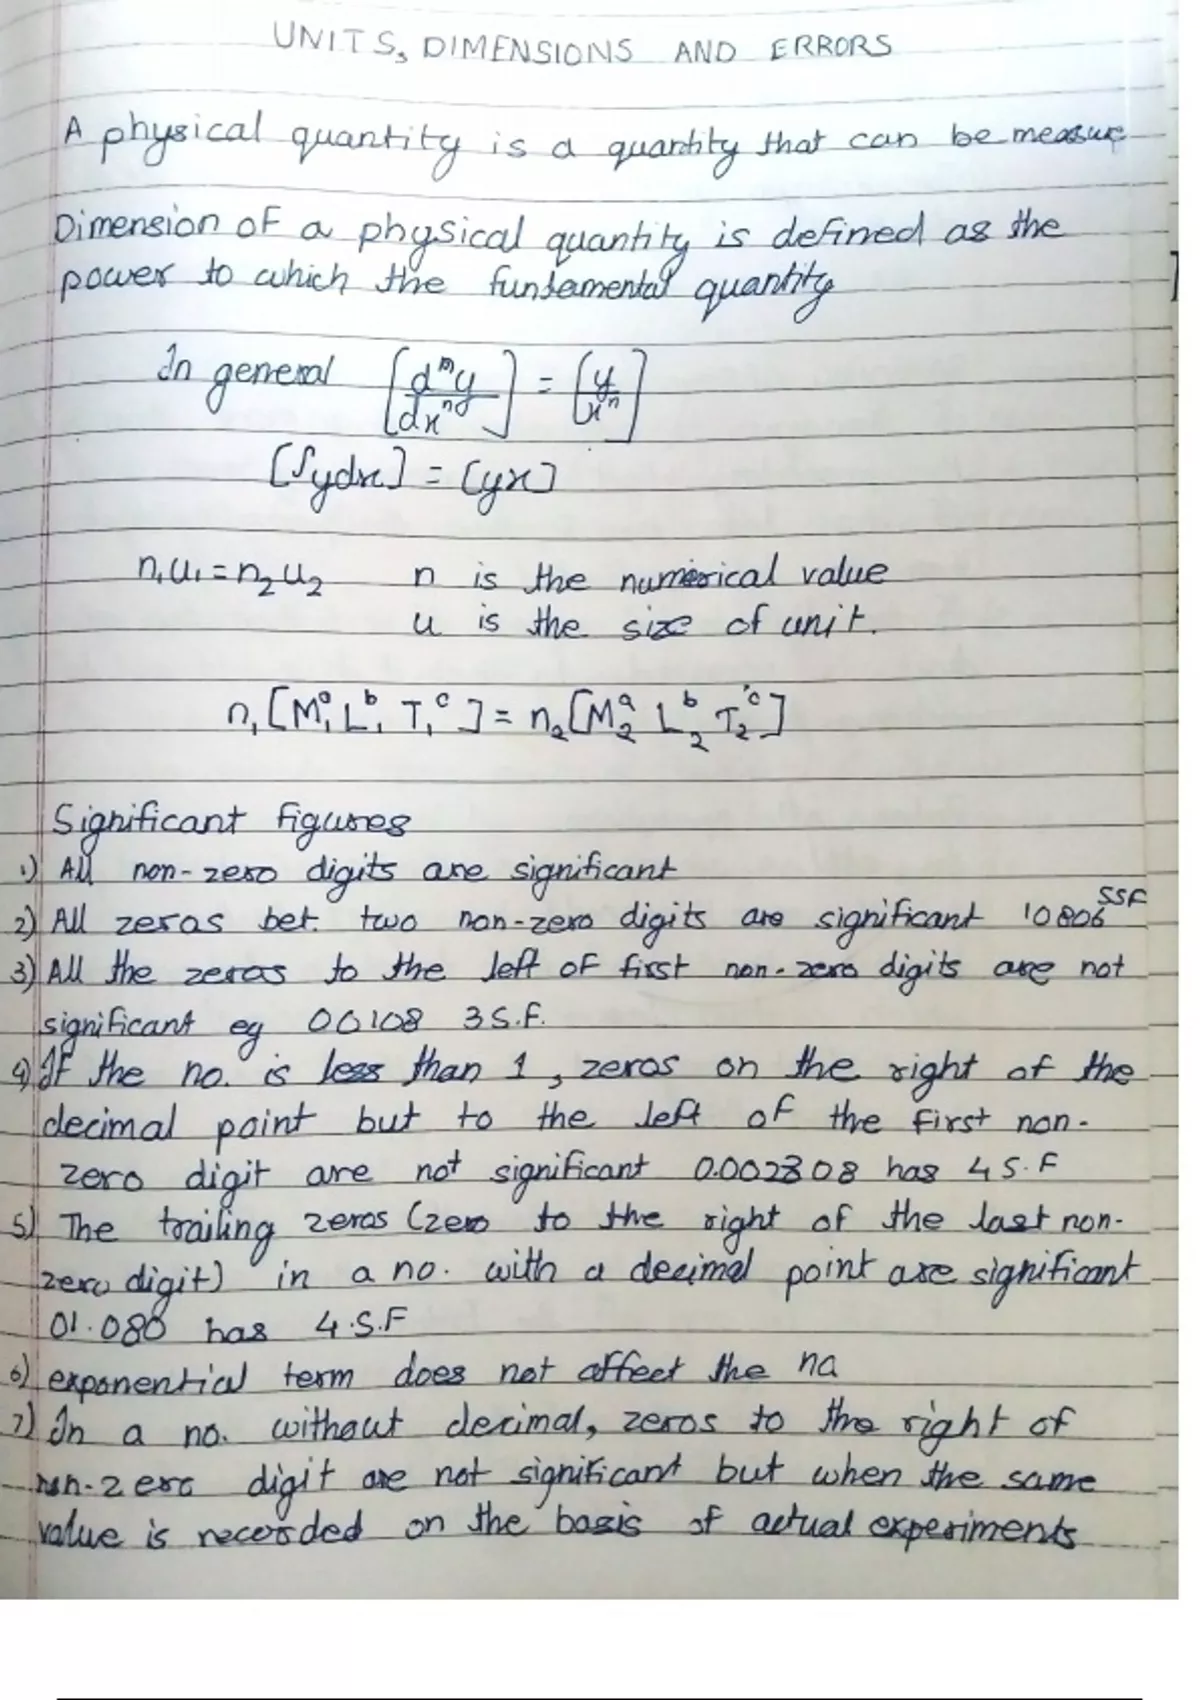 UNITS, DIMENSIONS AND ERRORS
A physical quantity is a quantity that can be measure
Dimension of a physical quantity is defined as the
power to which the fundamental quantity
In general [d^m y / dx^n] = [y / x^n]
[∫ydx] = [yx]
n₁u₁ = n₂u₂ n is the numerical value
u is the size of unit.
n₁[M₁^a L₁^b T₁^c] = n₂[M₂^a L₂^b T₂^c]
Significant figures
1) All non-zero digits are significant
2) All zeros bet. two non-zero digits are significant 10806 5SF
3) All the zeros to the left of first non-zero digits are not
significant eg 00108 3 S.F.
4) If the no. is less than 1, zeros on the right of the
decimal point but to the left of the first non-
zero digit are not significant 0.002308 has 4 S.F
5) The trailing zeros (zero to the right of the last non-
zero digit) in a no. with a decimal point are significant
01.080 has 4.S.F
6) exponential term does not affect the no
7) In a no. without decimal, zeros to the right of
non-zero digit are not significant but when the same
value is recorded on the basis of actual experiments